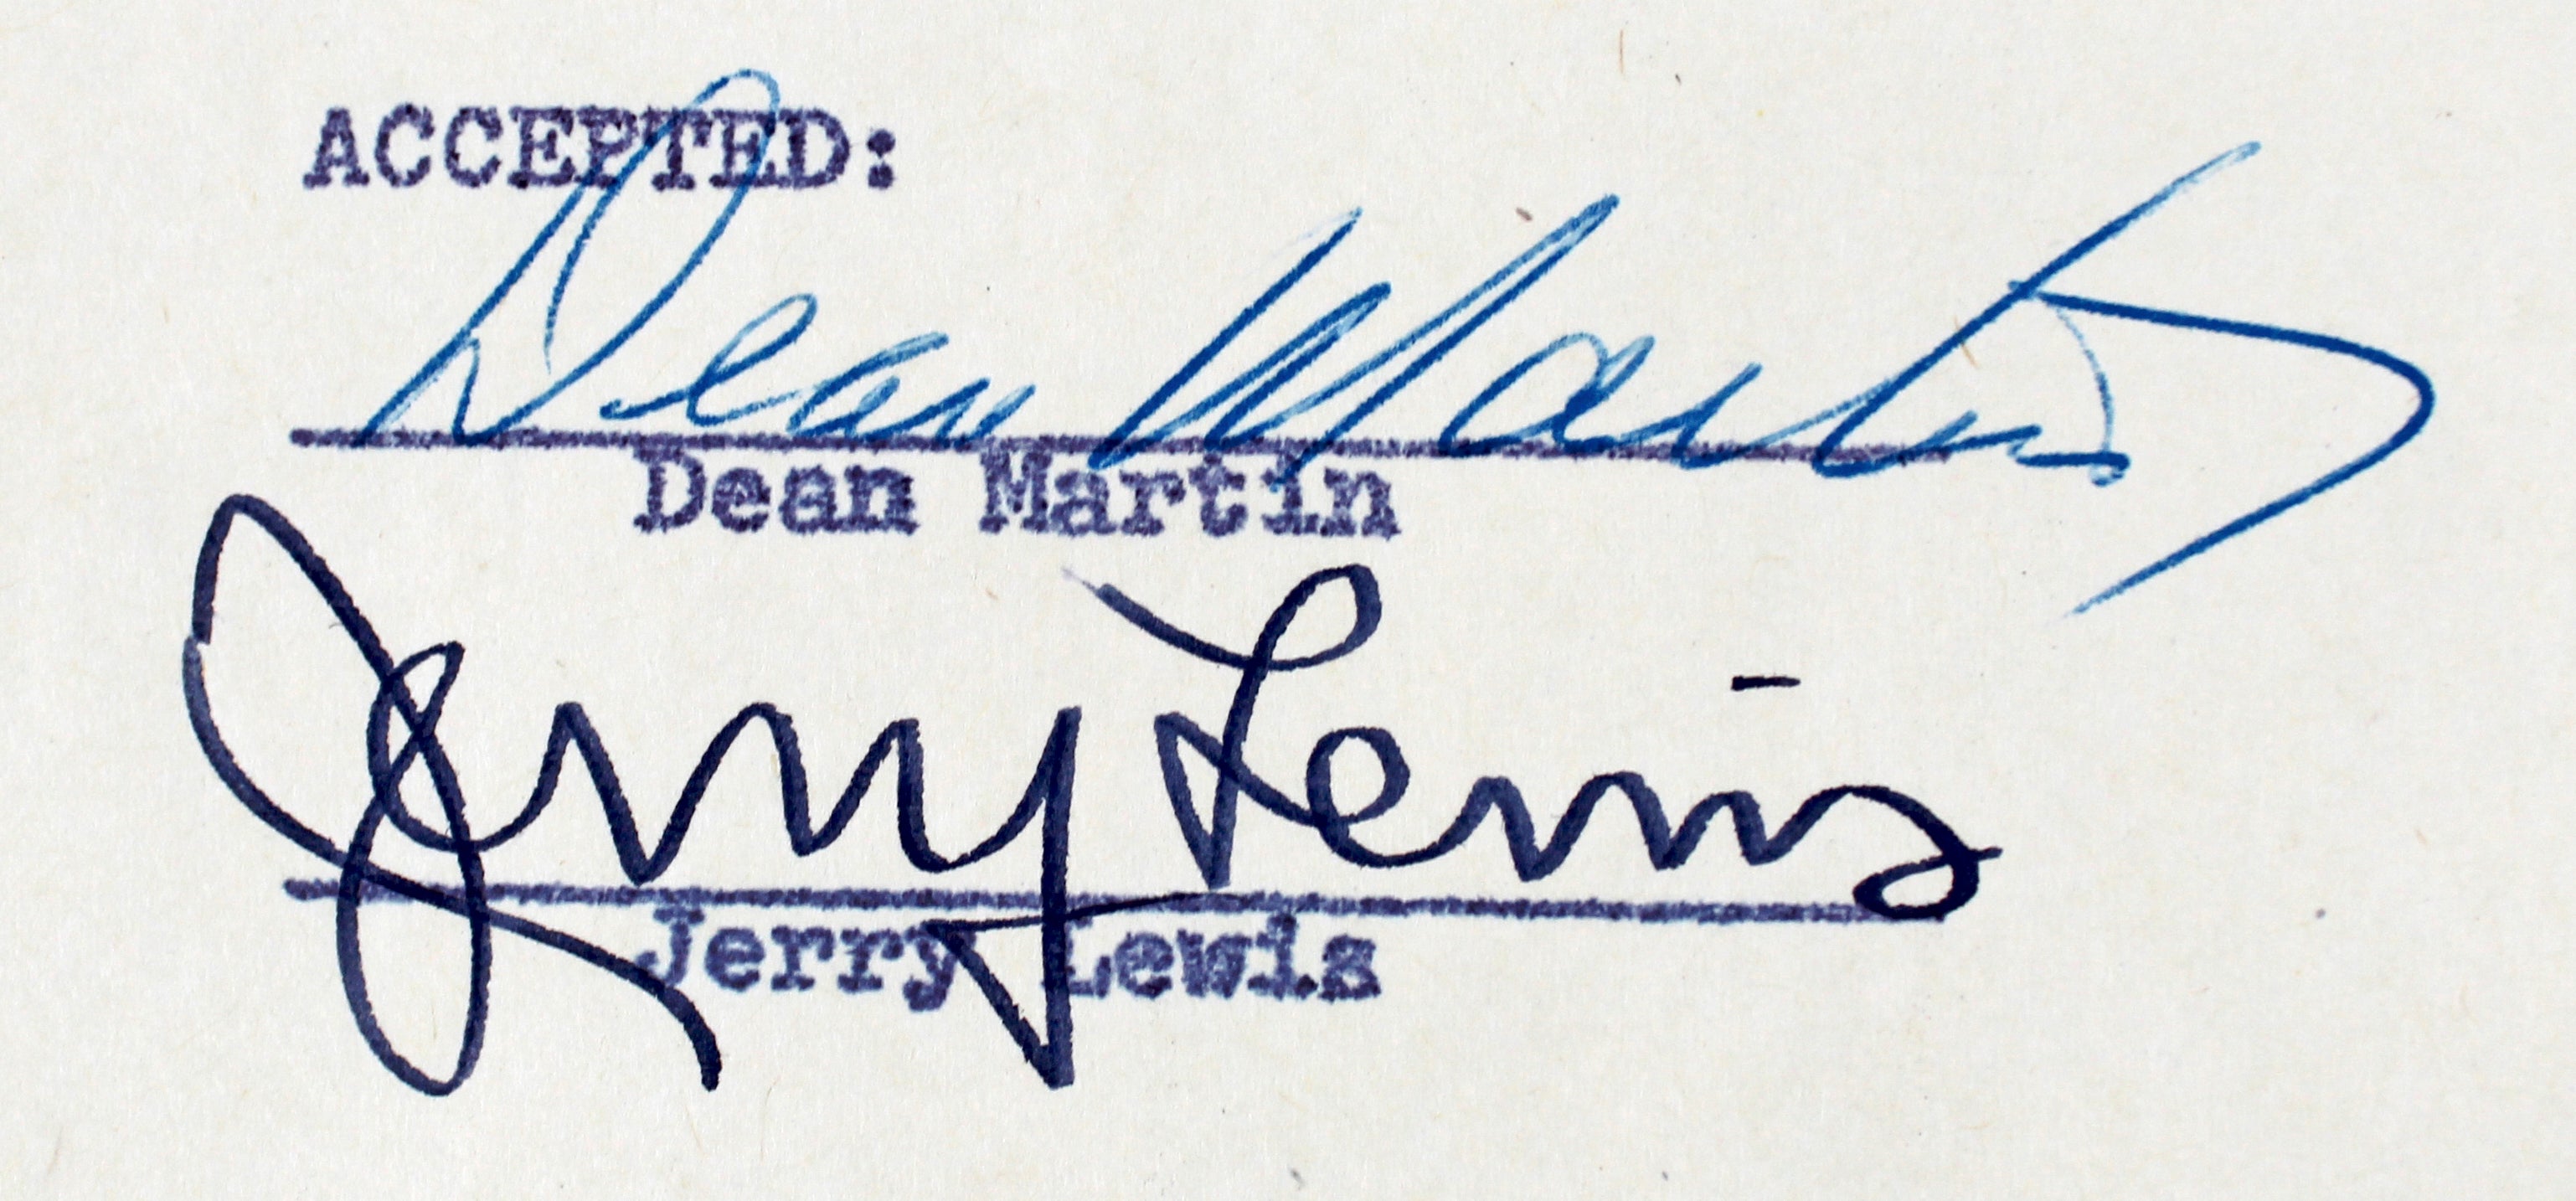 ACCEPTED:
Dean Martin
Dean Martin
Jerry Lewis
Jerry Lewis